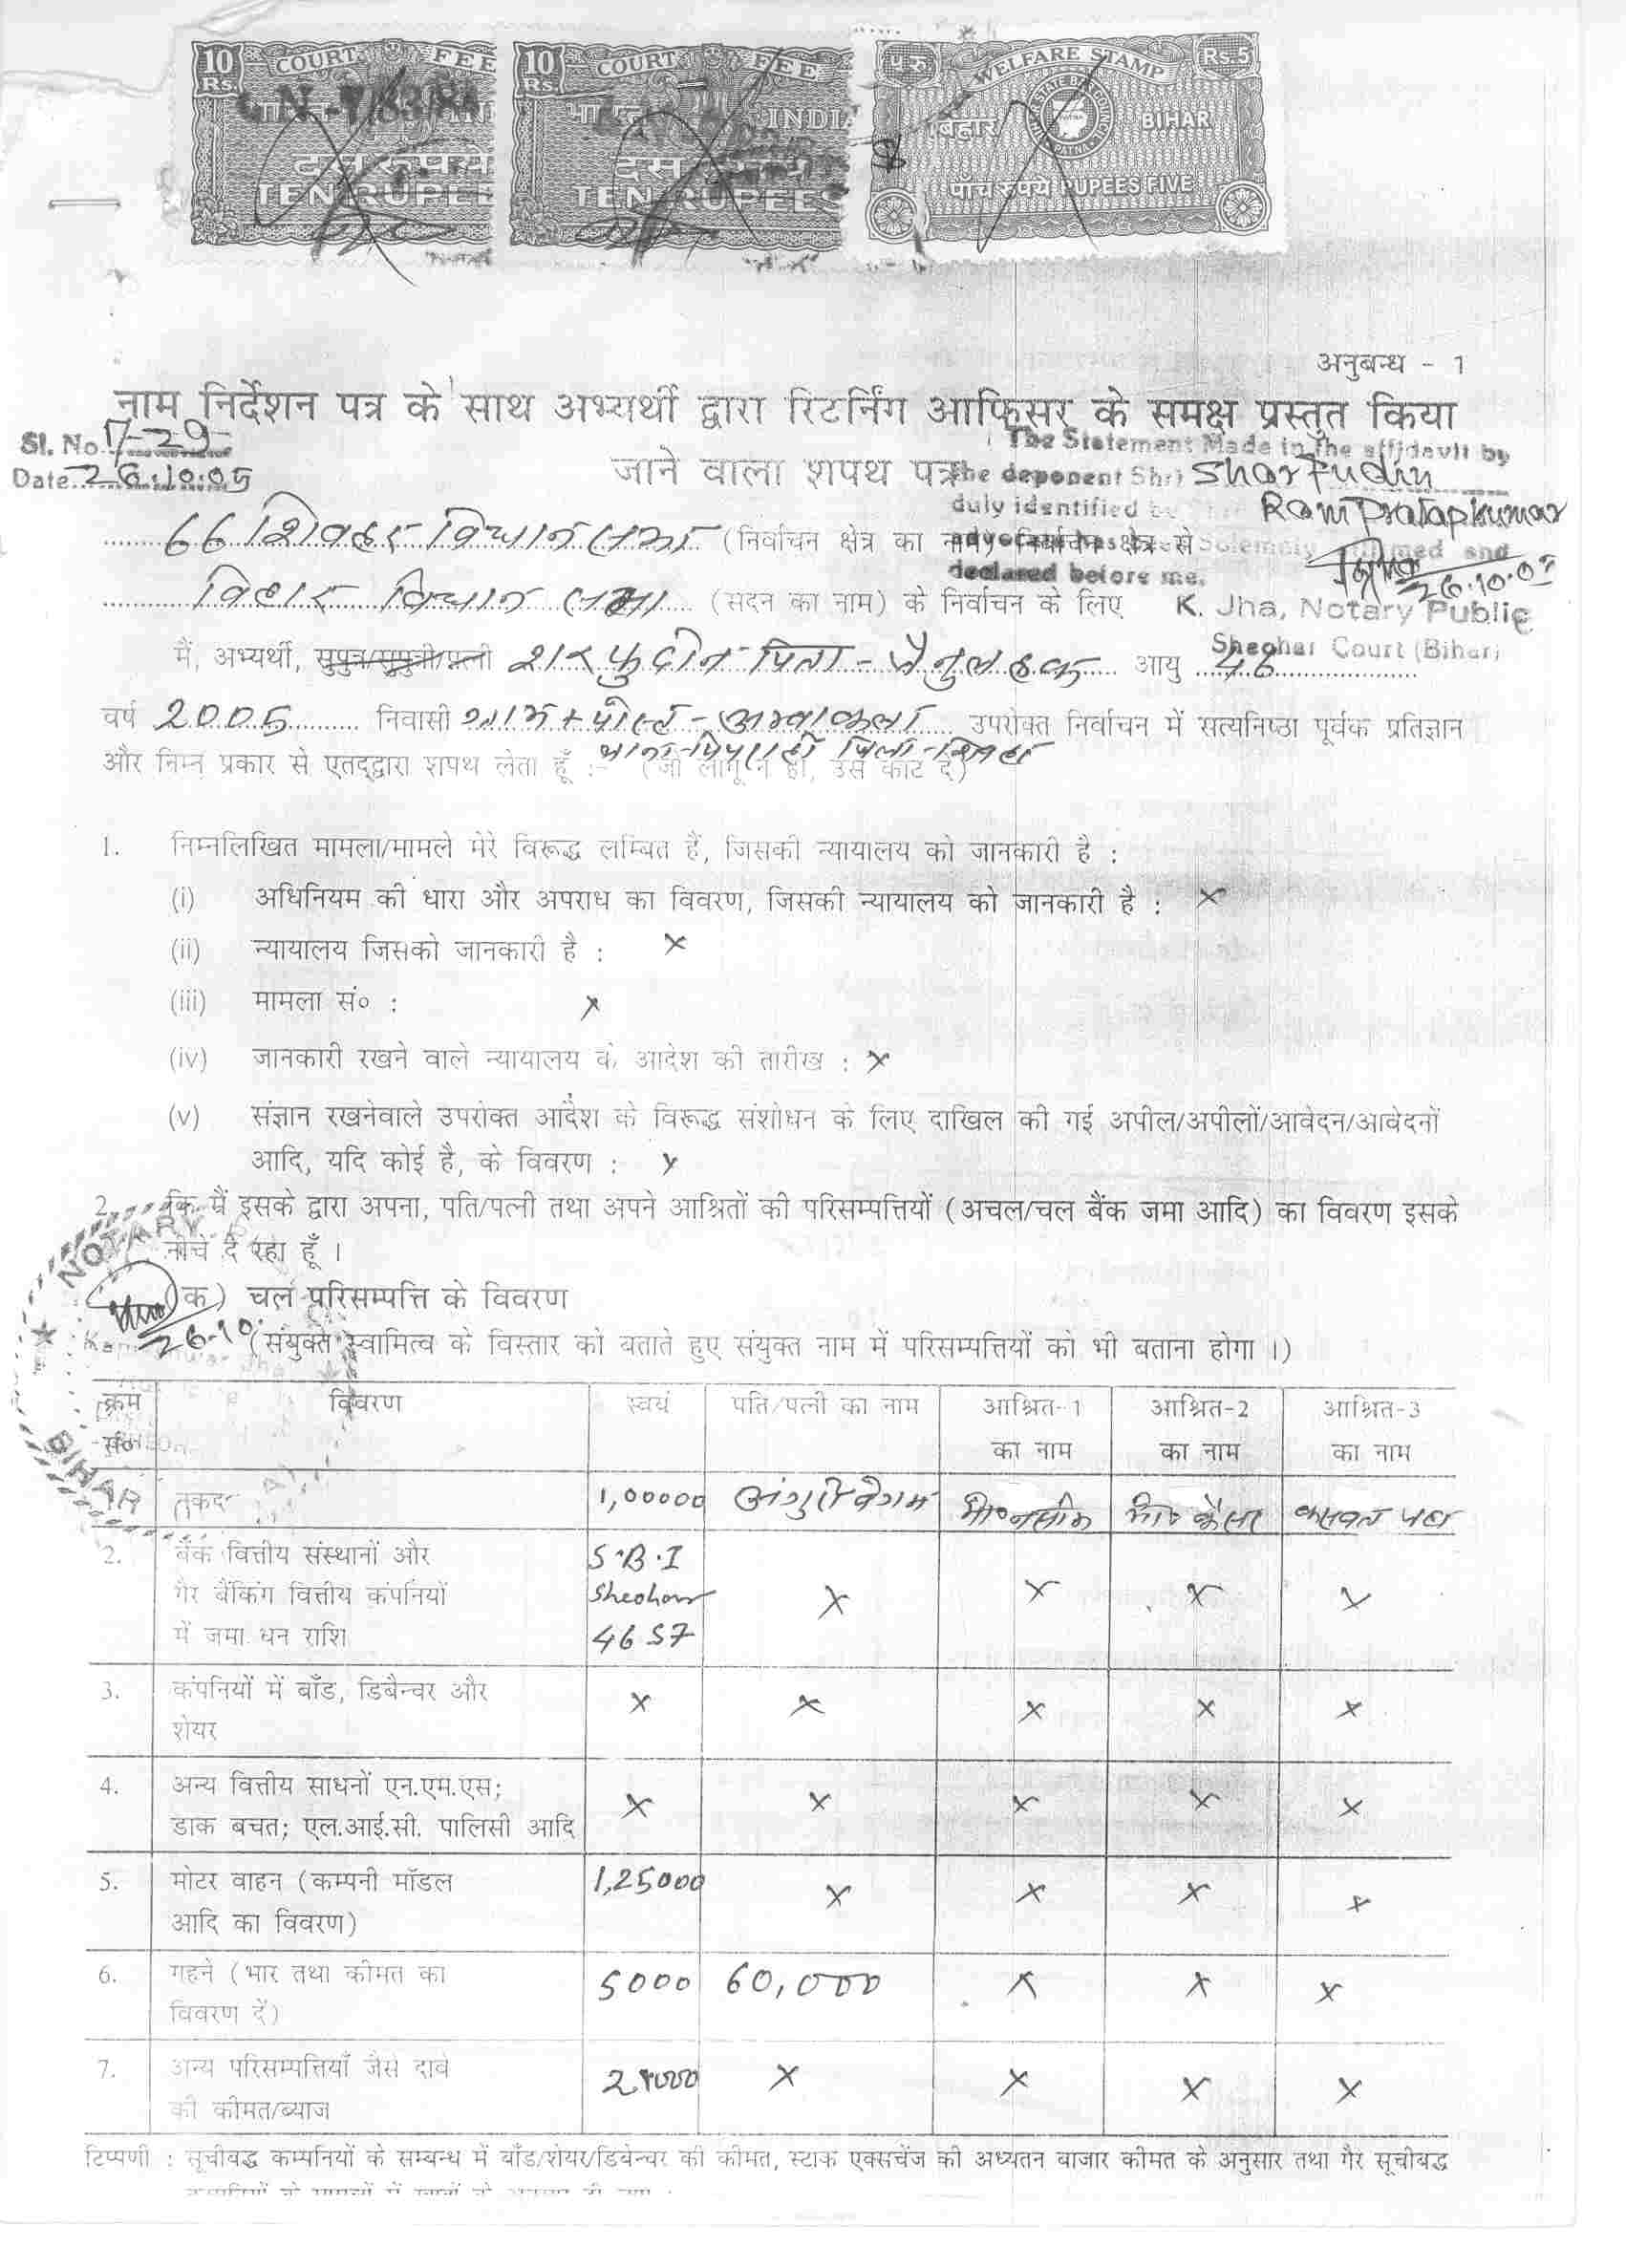 10 Rs. COURT FEE
भारत INDIA
दस रूपये
TEN RUPEES
10 Rs. COURT FEE
भारत INDIA
दस रूपये
TEN RUPEES
पाँ. रु. WELFARE STAMP Rs.5
बिहार BIHAR
STATE BAR COUNCIL PATNA
पाँच रुपये RUPEES FIVE
अनुबन्ध - 1
नाम निर्देशन पत्र के साथ अभ्यर्थी द्वारा रिटर्निंग आफिसर के समक्ष प्रस्तुत किया
जाने वाला शपथ पत्र
Sl. No. 17-29
Date 26.10.05
The Statement Made in the affidavit by
the deponent Shri Sharfudin
duly identified by Ram Pratap Kumar
advocate has been Solemnly affirmed and
declared before me.
26.10.05
K. Jha, Notary Public
Sheohar Court (Bihar)
66 शिवहर विधान सभा (निर्वाचन क्षेत्र का नाम) निर्वाचन क्षेत्र से
बिहार विधान सभा (सदन का नाम) के निर्वाचन के लिए
मैं, अभ्यर्थी, सुपुत्र/सुपुत्री/पत्नी शरफुदीन पिता - जैनुल हक आयु 46
वर्ष 2005 निवासी ग्राम + पोस्ट - अम्बाकला उपरोक्त निर्वाचन में सत्यनिष्ठा पूर्वक प्रतिज्ञान
थाना - पिपराही जिला - शिवहर
और निम्न प्रकार से एतद्द्वारा शपथ लेता हूँ :- (जो लागू न हो, उसे काट दें)
1. निम्नलिखित मामला/मामले मेरे विरूद्ध लम्बित हैं, जिसकी न्यायालय को जानकारी है :
(i) अधिनियम की धारा और अपराध का विवरण, जिसकी न्यायालय को जानकारी है : ×
(ii) न्यायालय जिसको जानकारी है : ×
(iii) मामला सं० : ×
(iv) जानकारी रखने वाले न्यायालय के आदेश की तारीख : ×
(v) संज्ञान रखनेवाले उपरोक्त आदेश के विरूद्ध संशोधन के लिए दाखिल की गई अपील/अपीलों/आवेदन/आवेदनों
आदि, यदि कोई है, के विवरण : ×
2. कि मैं इसके द्वारा अपना, पति/पत्नी तथा अपने आश्रितों की परिसम्पत्तियों (अचल/चल बैंक जमा आदि) का विवरण इसके
नीचे दे रहा हूँ ।
NOTARY
BIHAR
क) चल परिसम्पत्ति के विवरण
26-10
(संयुक्त स्वामित्व के विस्तार को बताते हुए संयुक्त नाम में परिसम्पत्तियों को भी बताना होगा ।)
क्रम विवरण स्वयं पति/पत्नी का नाम आश्रित-1 आश्रित-2 आश्रित-3
सं० का नाम का नाम का नाम
नकद 1,00000 अंगुरी बेगम मो० नसीम मो० कैसर
2. बैंक वित्तीय संस्थानों और S.B.I
गैर बैंकिंग वित्तीय कंपनियों Sheohar × × × ×
में जमा धन राशि 4657
3. कंपनियों में बॉंड, डिबैन्चर और × × × × ×
शेयर
4. अन्य वित्तीय साधनों एन.एम.एस; × × × × ×
डाक बचत; एल.आई.सी. पालिसी आदि
5. मोटर वाहन (कम्पनी मॉडल 1,25000 × × × ×
आदि का विवरण)
6. गहने (भार तथा कीमत का 5000 60,000 × × ×
विवरण दें)
7. अन्य परिसम्पत्तियाँ जैसे दावे × × × ×
की कीमत/ब्याज
टिप्पणी : सूचीबद्ध कम्पनियों के सम्बन्ध में बॉंड/शेयर/डिबेन्चर की कीमत, स्टाक एक्सचेंज की अध्यतन बाजार कीमत के अनुसार तथा गैर सूचीबद्ध